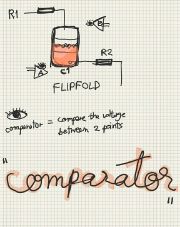 R1
B
R2
A
C1
FLIPFOLD
comparator = compare the voltage
between 2 points
"comparator"